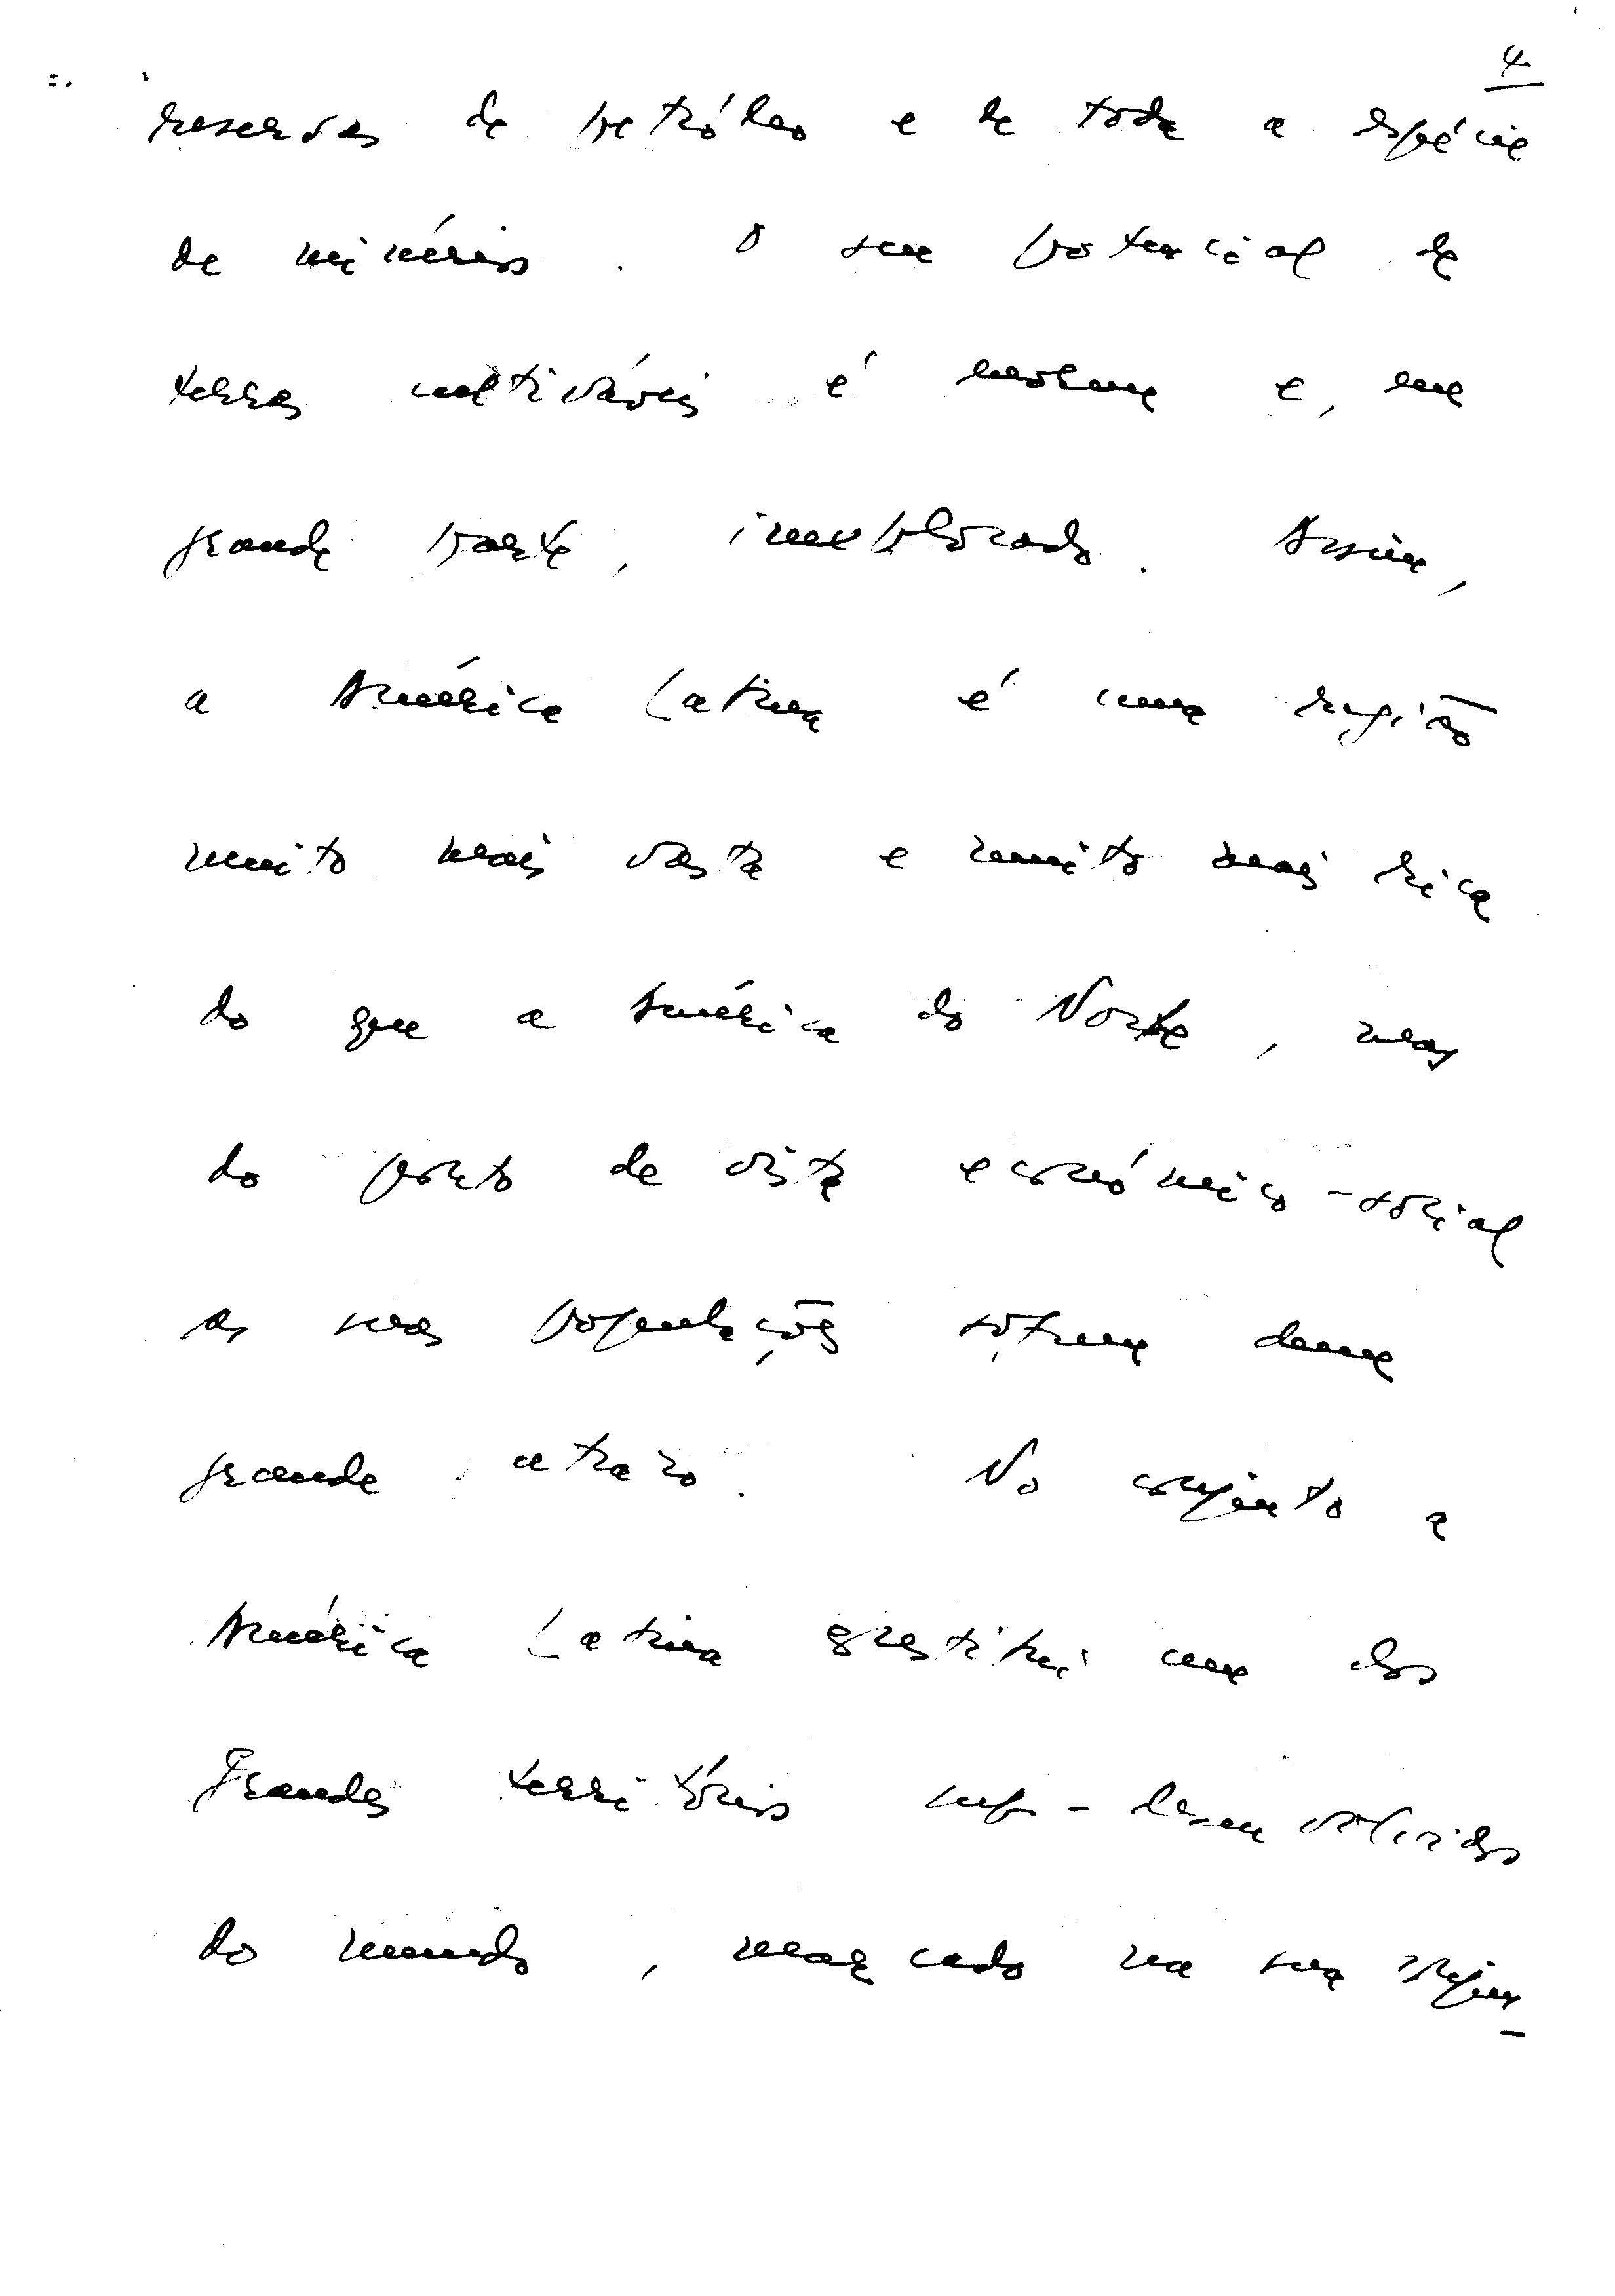 4
reservas de petróleo e de toda a espécie
de minérios. O seu potencial de
terras cultiváveis é enorme e, em
grande parte, inexplorado. Assim,
a América Latina é uma região
muito mais vasta e muito mais rica
do que a América do Norte, mas
do ponto de vista económico-social
as suas populações sofrem dum
grande atrazo. No conjunto a
América Latina constitui um dos
grandes territórios sub-desenvolvidos
do mundo, marcado na sua